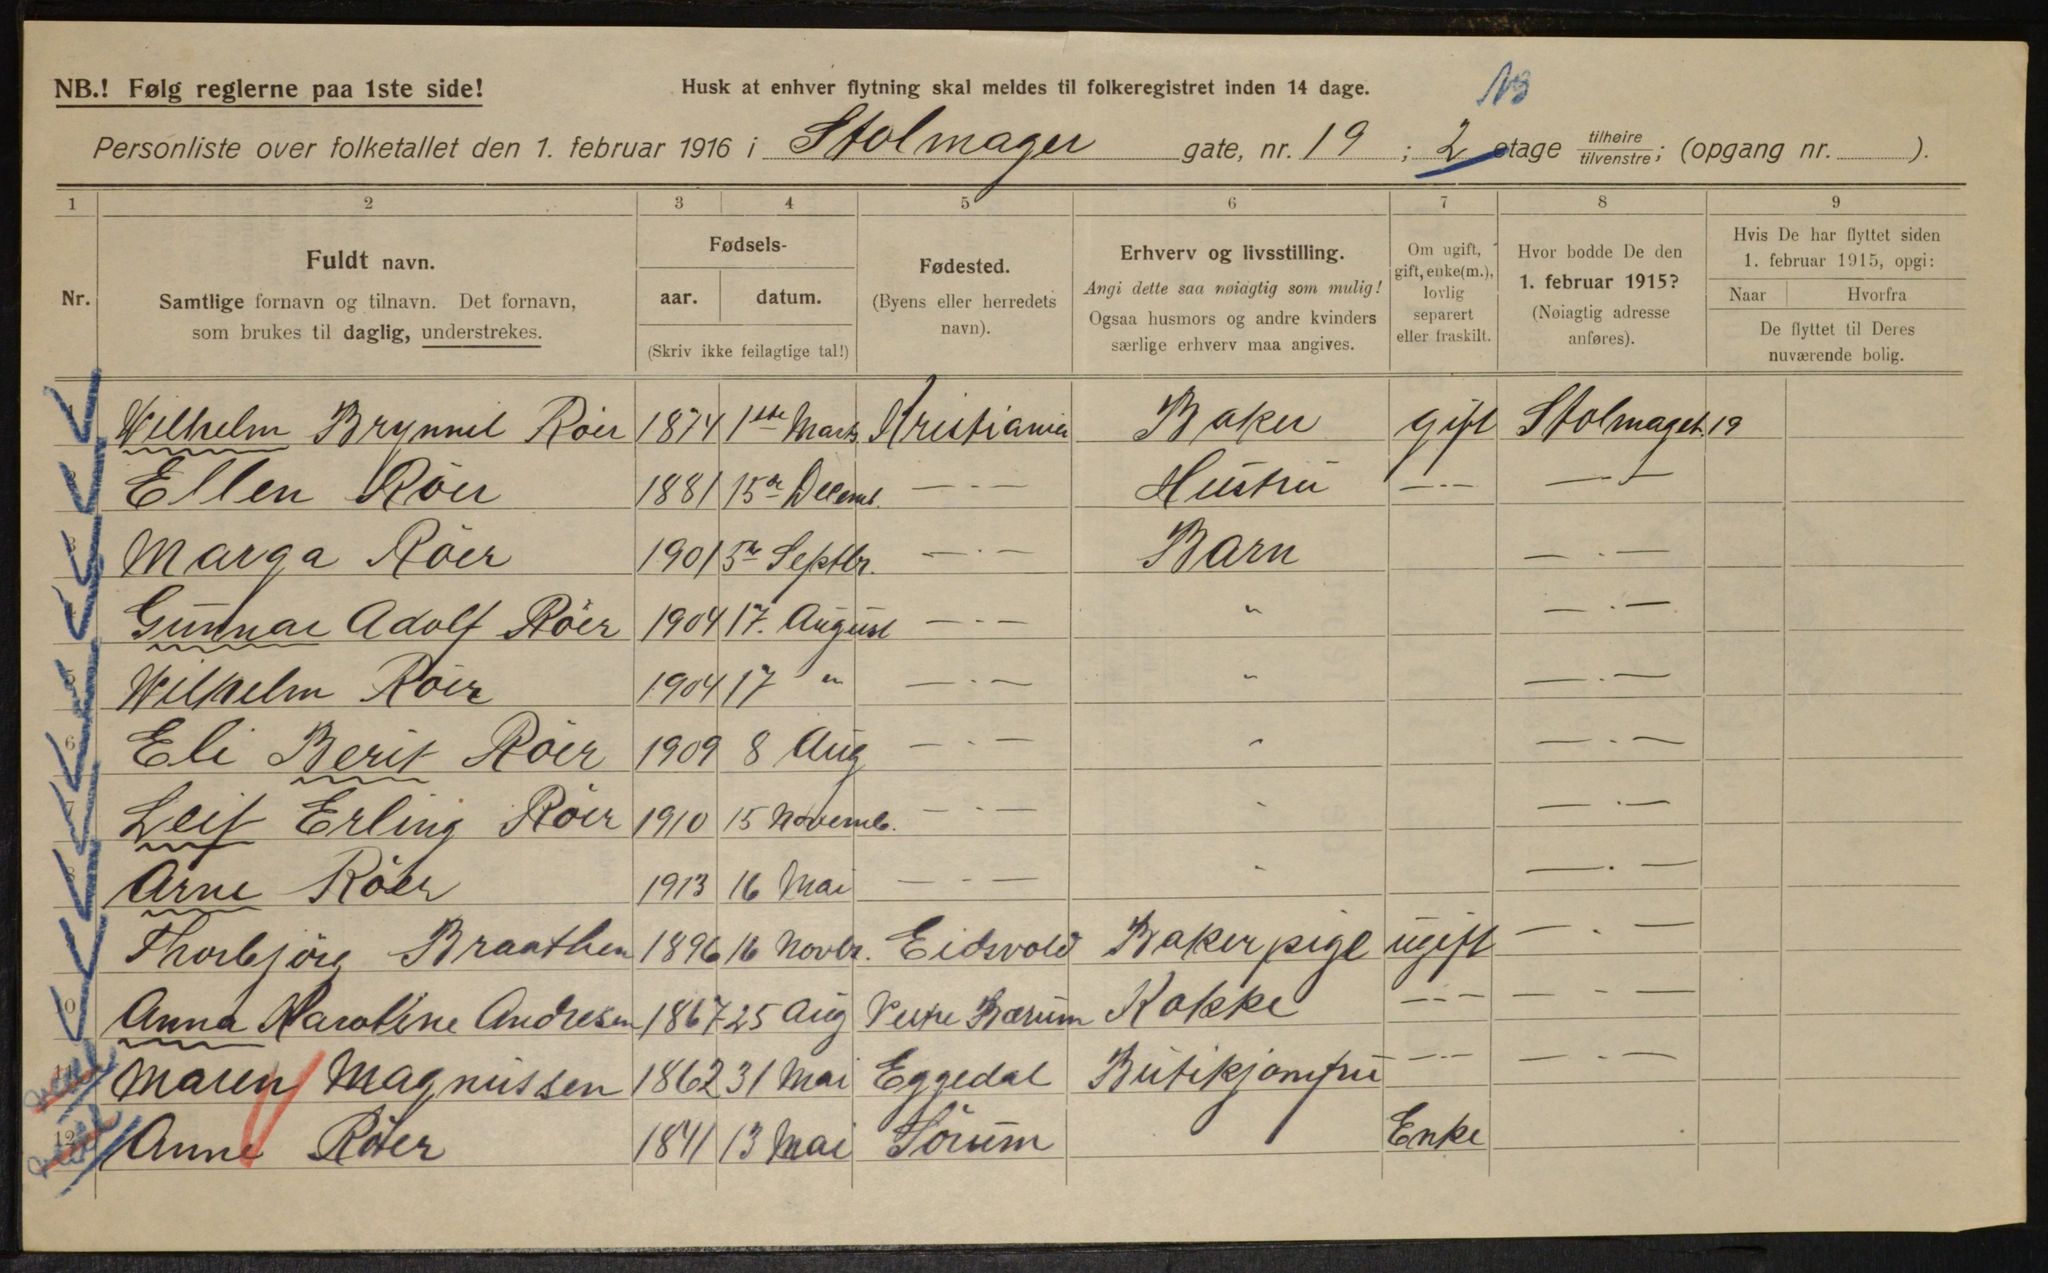 NB.! Følg reglerne paa 1ste side!
Husk at enhver flytning skal meldes til folkeregistret inden 14 dage.
NB
Personliste over folketallet den 1. februar 1916 i Stolmager gate, nr. 19 ; 2 etage tilhøire/tilvenstre; (opgang nr. ).
1 2 3 4 5 6 7 8 9
Nr.
Fuldt navn.
Samtlige fornavn og tilnavn. Det fornavn,
som brukes til daglig, understrekes.
Fødsels-
aar. datum.
(Skriv ikke feilagtige tal!)
Fødested.
(Byens eller herredets
navn).
Erhverv og livsstilling.
Angi dette saa nøiagtig som mulig!
Ogsaa husmors og andre kvinders
særlige erhverv maa angives.
Om ugift,
gift, enke(m.),
lovlig
separert
eller fraskilt.
Hvor bodde De den
1. februar 1915?
(Nøiagtig adresse
anføres).
Hvis De har flyttet siden
1. februar 1915, opgi:
Naar Hvorfra
De flyttet til Deres
nuværende bolig.
Wilhelm Röer 1874 1ste Marts Kristiania Baker gift Stolmaget. 19
Ellen Röer 1881 15 Decemb. — · — Hustru — · — — · —
3 Marga Röer 1901 5 Septbr. — · — Barn — · —
4 Gunnar Adolf Röer 1904 17. August — · — " — · —
5 Wilhelm Röer 1904 17 " — · — " — · —
6 Eli Berit Röer 1909 8 Aug — · — " — · —
7 Leif Erling Röer 1910 15 Novemb. — · — " — · —
8 Arne Röer 1913 16 Mai — · — " — · —
Thorbjörg Braathen 1896 16 Novbr. Eidsvold Bakerpige ugift — · —
10 Anna Karoline Andresen 1867 25 Aug Vestre Bærum Kokke — · — — · —
11 Maren Magnussen 1862 31 Mai Eggedal Butikjomfru — · — — · —
12 Anne Röer 1841 13 Mai Sörum Enke